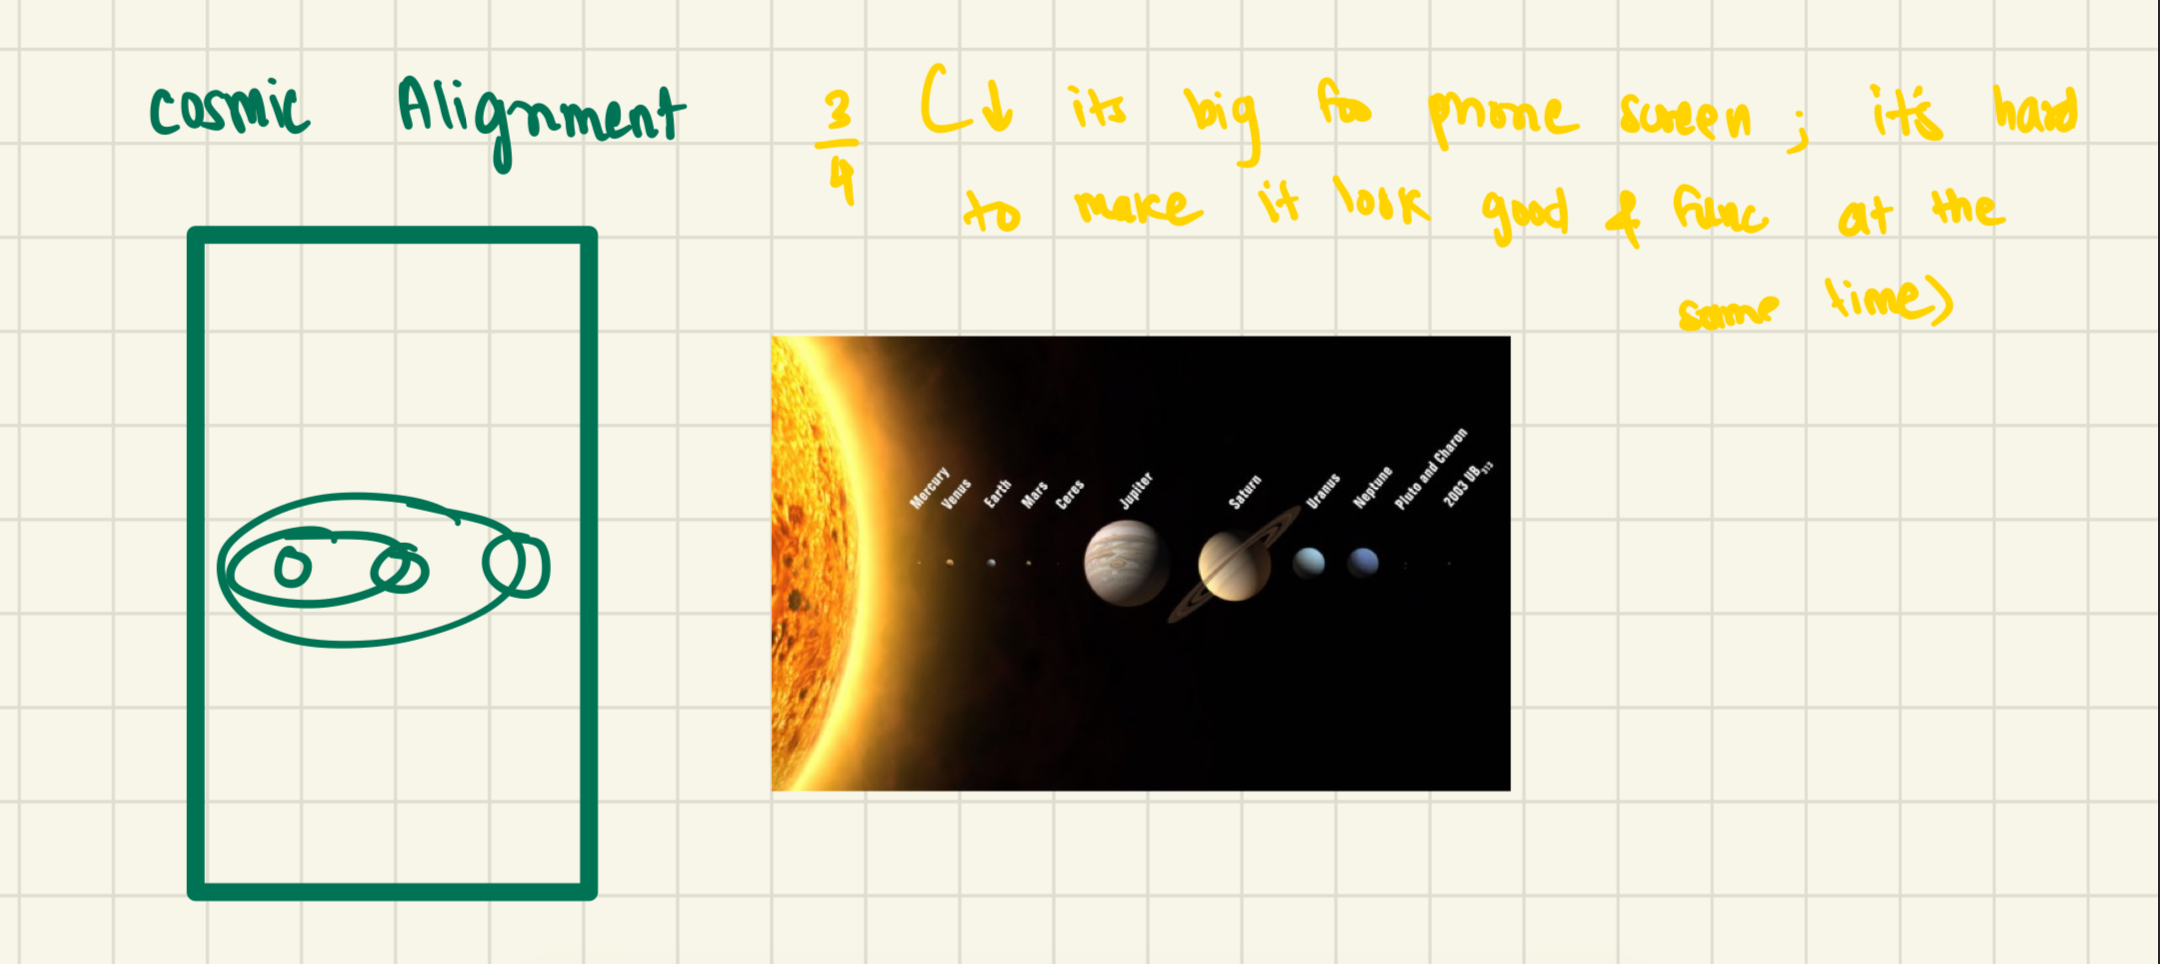 cosmic Alignment
3/4 (↓ its big fo phone screen ; it's hard
to make it look good & func at the
same time)
Mercury
Venus
Earth
Mars
Ceres
Jupiter
Saturn
Uranus
Neptune
Pluto and Charon
2003 UB₃₁₃